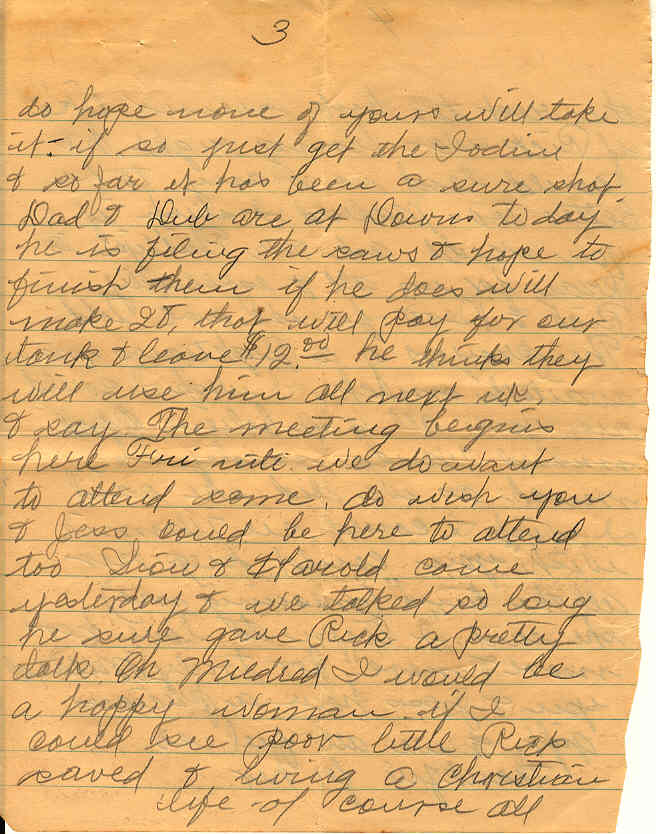 3
do hope none of yours will take
it - if so just get the Iodine
& so far it has been a sure shot.
Dad & Dub are at Downs today
he is filing the saws & hope to
finish them if he does will
make 20, that will pay for our
tank & leave $12.00 he thinks they
will use him all next wk.
& say The meeting begins
here Fri nite we do want
to attend some, do wish you
& Jess could be here to attend
too & Harold come
yesterday & we talked so long
he sure gave Rick a pretty
talk. Oh Mildred I would be
a happy woman if I
could see poor little Rick
saved & living a Christian
life of course all